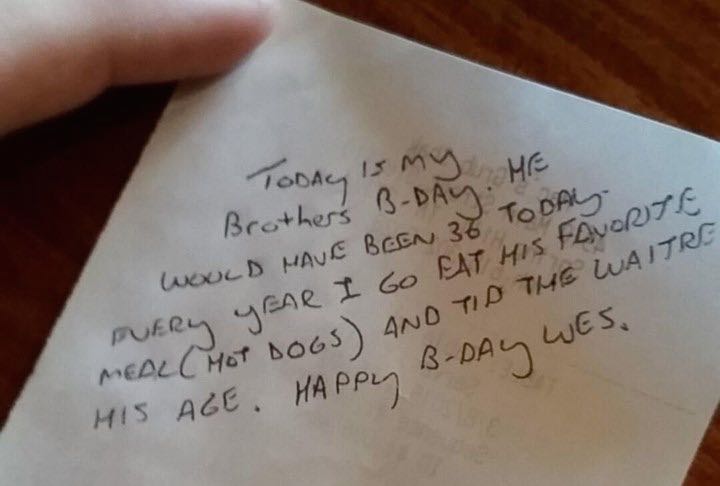 TODAY IS MY
Brothers B-DAY. HE
WOULD HAVE BEEN 36 TODAY.
EVERY YEAR I GO EAT HIS FAVORITE
MEAL (HOT DOGS) AND TIP THE WAITRE
HIS AGE. HAPPY B-DAY WES.